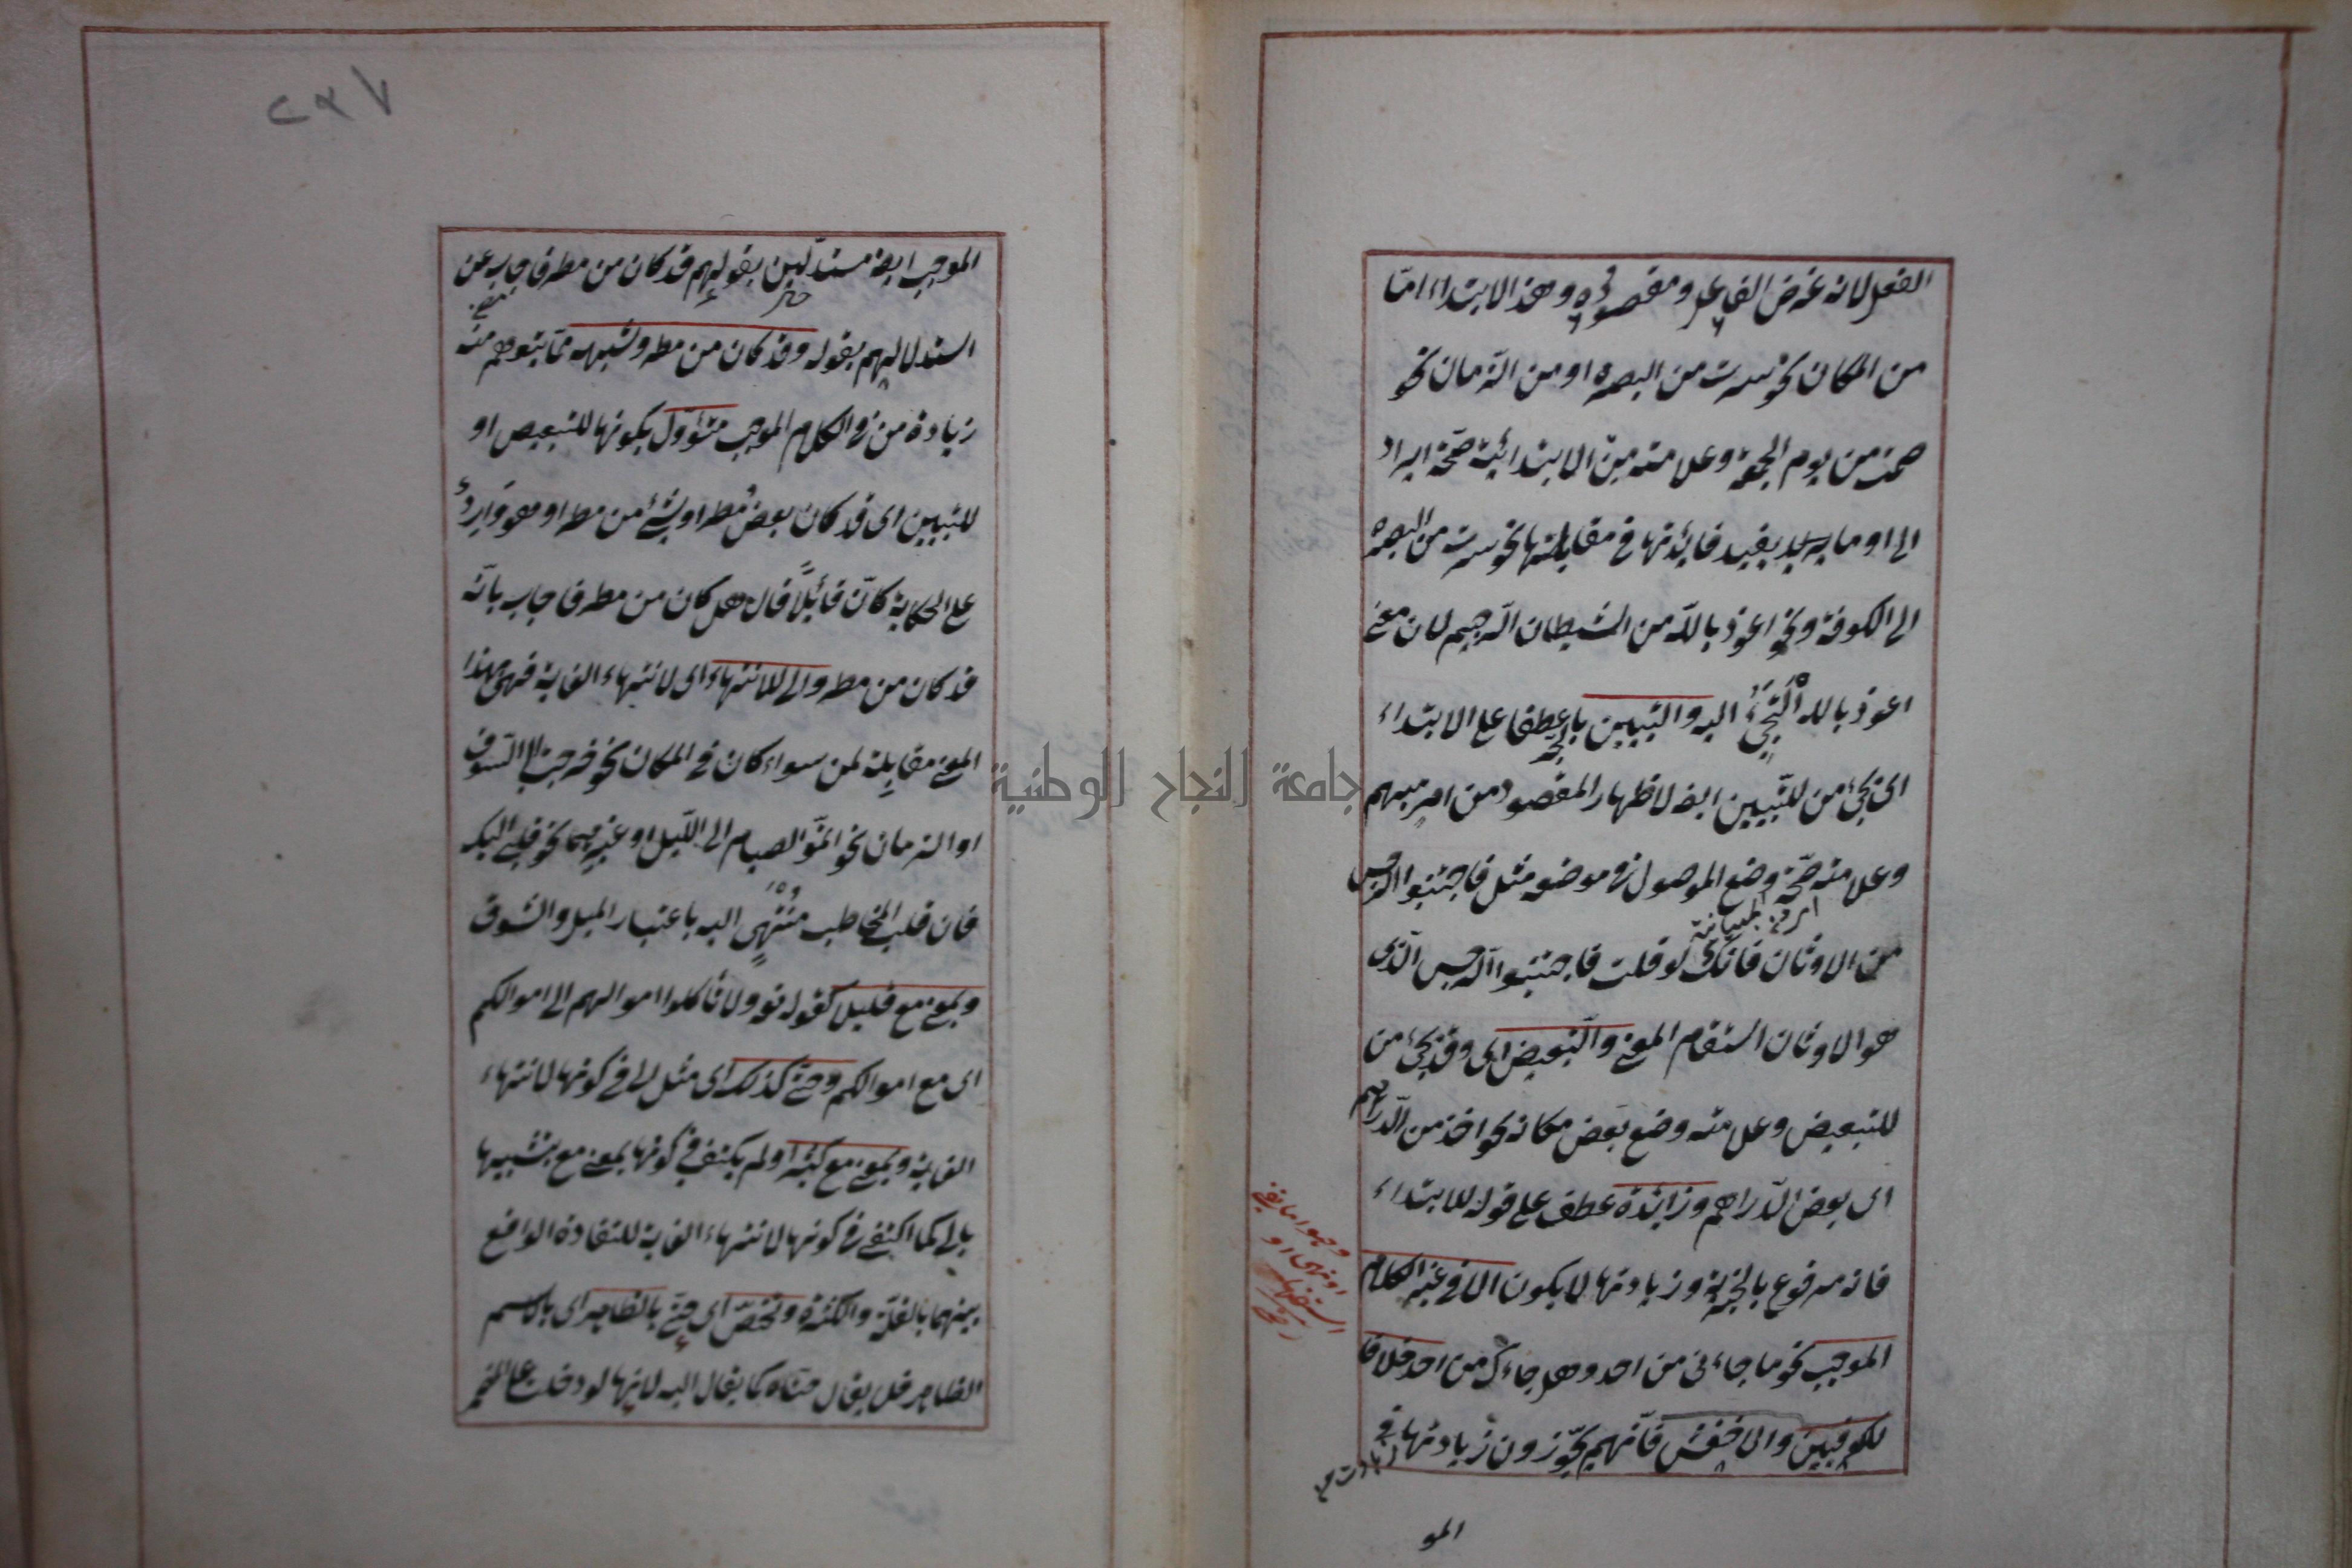 الفعل لانه غرض الفاعل ومقصوده وهذا الابتداء امّا
من المكان نحو سرت من البصرة او من الزمان نحو
صمت من يوم الجمعة وعلامته من الابتدائية صحّة ايراد
الى او ما يفيد فائدتها في مقابلتها نحو سرت من البصرة
الى الكوفة ونحو اعوذ بالله من الشيطان الرّجيم لان معنى
اعوذ بالله ألتجئ اليه والتبيين بالجرّ عطفا على الابتداء
اى يجئ من للتّبيين ايضا لاظهار المقصود من امر مبهم
وعلامته صحّة وضع الموصول في موضعه مثل فاجتنبوا الرجس
من الاوثان فانّك لو قلت فاجتنبوا الرجس الّذى
هو الاوثان استقام المعنى والتّبعيض اى وقد يجئ من
للتبعيض وعلامته وضع بعض مكانه نحو اخذ من الدّراهم
اى بعض الدّراهم وزائدة عطف على قوله للابتداء
فانه مرفوع بالخبريّة وزيادتها لا يكون الا في غير الكلام
الموجب نحو ما جاءنى من احد وهل جاءك من احد خلافا
للكوفيين والاخفش فانّهم يجوّزون زيادتها في
المو
جامعة النجاح الوطنية
٢٩٧
الموجب ايضا مستدلّين بقولهم قد كان من مطر فاجاب عن
استدلالهم بقوله وقد كان من مطر وشبهه ممّا يتوهم منه
زيادة من في الكلام الموجب متؤوّل بكونها للتبعيض او
للتبيين اى قد كان بعض مطر او شئ من مطر او هو وارد
على الحكاية كانّ قائلاً قال هل كان من مطر فاجاب بانّه
قد كان من مطر والى للانتهاء اى لانتهاء الغاية فهى بهذا
المعنى مقابلة لمن سواء كان في المكان نحو خرجت الى السّوق
او الزمان نحو اتمّوا الصيام الى اللّيل او غيرهما نحو قلبى اليك
فان قلب المخاطب منتهٍ اليه باعتبار الميل والشوق
وبمعنى مع قليلا كقوله تع ولا تأكلوا اموالهم الى اموالكم
اى مع اموالكم وحتّى كذلك اى مثل الى في كونها لانتهاء
الغاية وبمعنى مع كثيرا ولم يكتف في كونها بمعنى مع بتشبيهها
بالى كما اكتفى في كونها لانتهاء الغاية للتفاوت الواقع
بينهما بالقلّة والكثرة وتختصّ اى حتّى بالظاهر اى بالاسم
الظاهر فلا يقال حتّاه كما يقال اليه لانها لو دخلت على المضمر